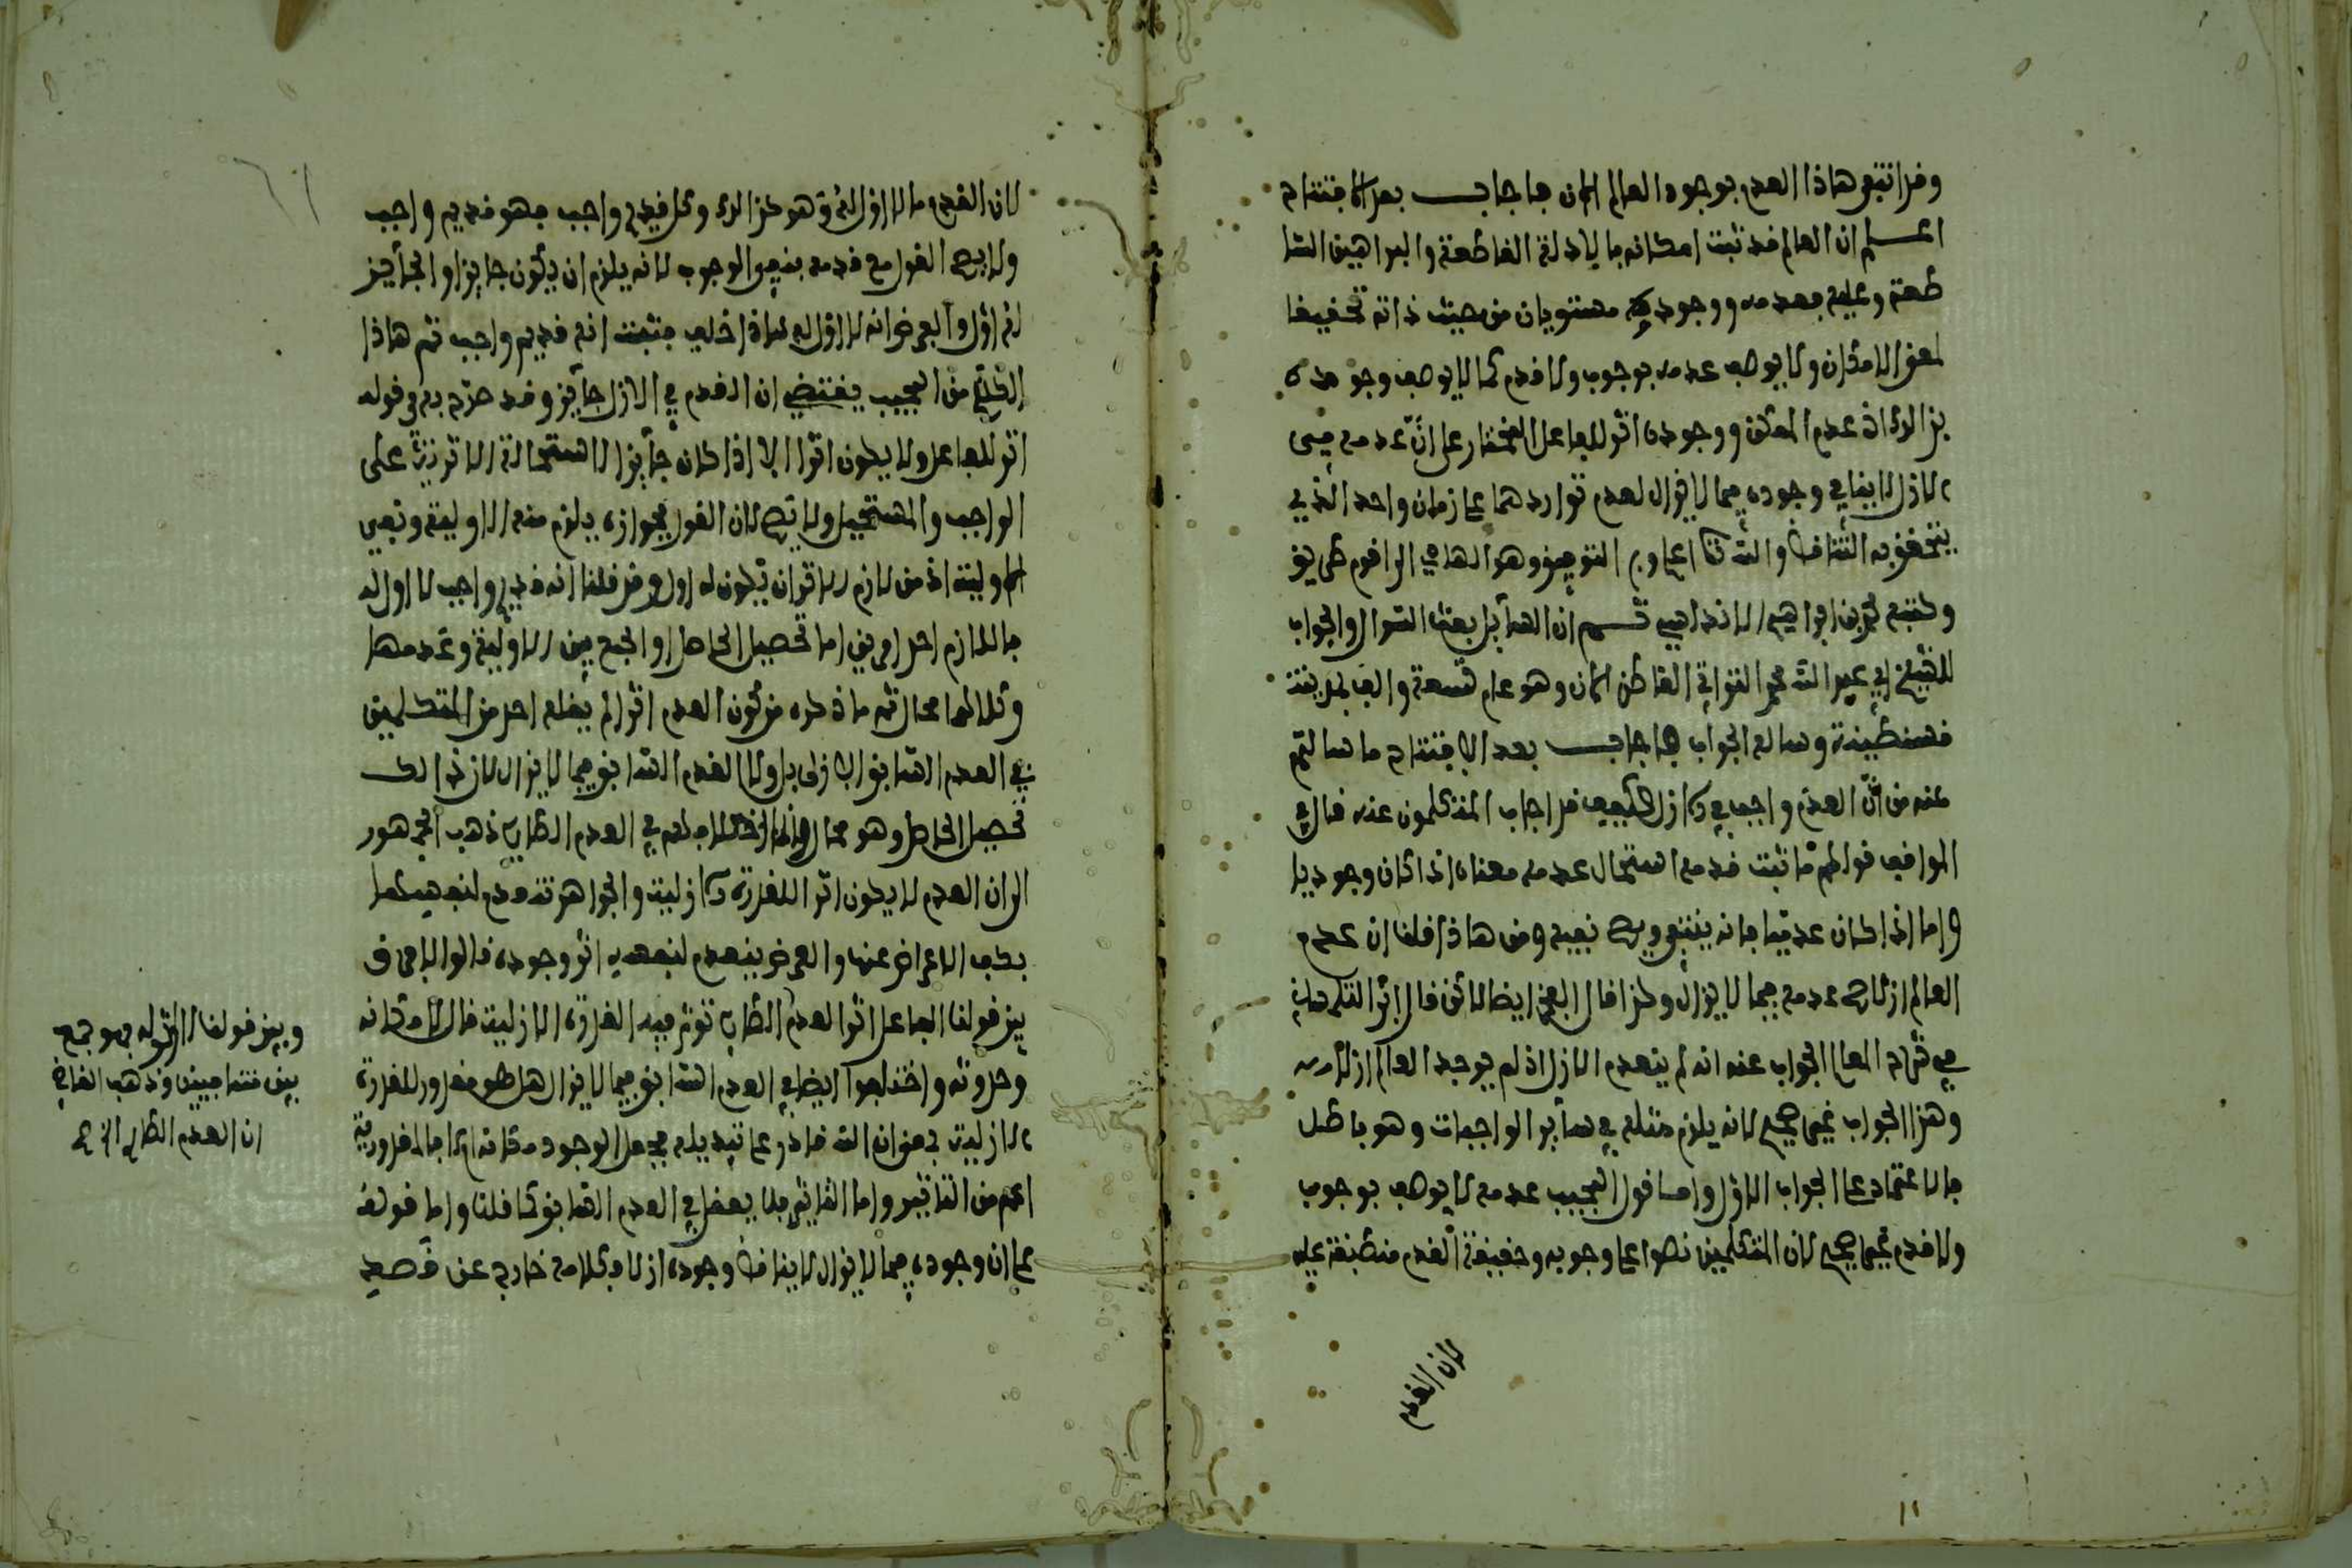 وقد انتفى هاذا العدم بوجود العالم الان فاجاب بعد الافتتاح
اعلم ان العالم قد ثبت امكانه بالادلة القاطعة والبراهين السا
طعة وعليه فعدمه ووجوده مستويان من حيث ذاته تحقيقا
لمعنى الامكان ولا يوصف عدمه بوجوب ولا قدم كما لا يوصف وجوده
بذالك اذ عدم الممكن ووجوده اثر للفاعل المختار على ان عدمه في
الازل لا ينافي وجوده فيما لا يزال لعدم تواردهما على زمان واحد الذي
يتحقق به التناقض والله تعالى اعلم وبه التوفيق وهو الهادي الى اقوم طريق
وكتبه ابراهيم ثم ان السائل بعث السوال والجواب
للشيخ ابي عبد الله محمد القاطن الان وهو عام تسعة والف بمدينة
قسنطينة وساله الجواب فاجاب بعد الافتتاح ما سالتم
عنه من ان العدم واجب في الازل فكيف قد اجاب المتكلمون عنه قال في
المواقف قولهم ما ثبت قدمه استحال عدمه معناه اذا كان وجوديا
واما اذا كان عدميا فانه ينتفي ويصح نفيه ومن هاذا قلنا ان عدم
العالم ازلا صح عدمه فيما لا يزال وكذا قال الفخر ايضا لاكن قال ابن التلمساني
في شرح المعالم الجواب عنه انه لم ينعدم الازل اذ لم يوجد العالم ازلا
وهذا الجواب غير صحيح لانه يلزم مثله في سائر الواجبات وهو باطل
فالاعتماد على الجواب الاول واما قول المجيب عدمه لا يوصف بوجوب
ولا قدم غير صحيح لان المتكلمين نصوا على وجوبه وحقيقة القدم منطبقة عليه
لان القدم
١١
لان القدم ما لا اول له وهو كذالك وكل قديم واجب فهو قديم واجب
ولا يصح القول مع قدمه بنفي الوجوب لانه يلزم ان يكون جايزا والجايز
له اول والفرض انه لا اول له هاذا خلف فثبت انه قديم واجب ثم هاذا
الكلام من المجيب يقتضي ان القدم في الازل جايز وقد صرح به في قوله
اثر للفاعل ولا يكون اثرا الا اذا كان جايزا لاستحالة التاثير على
الواجب والمستحيل ولا يصح لان القول بجوازه يلزم منه الاولية ونفي
الاولية اذ من لازم الاثر ان يكون له اول وقد قلنا انه قديم واجب لا اول له
فاللازم احد امرين اما تحصيل الحاصل او الجمع بين الاولية وعدمها
وكلاهما محال ثم ما ذكره من كون العدم اثرا لم يقله احد من المتكلمين
في العدم السابق الازلي بل ولا العدم السابق فيما لا يزال لان ذالك
تحصيل الحاصل وهو محال وانما اختلافهم في العدم الطاري ذهب الجمهور
الى ان العدم لا يكون اثرا للقدرة الازلية والجواهر تنعدم لنفسها
بكف الاعراض عنها والعرض ينعدم لنفسه اثر وجوده قالوا لا فرق
بين قولنا الفاعل اثر العدم الطاري توثر فيه القدرة الازلية قال لامكانه
وحدوثه واختلفوا ايضا في العدم السابق فيما لا يزال هل هو مقدور للقدرة
الازلية بمعنى ان الله قادر على تبديله بجعل الوجود مكانه ام لا فالمقدورية
اعم من التاثير واما التاثير فلا يعقل في العدم السابق كما قلنا واما قوله
على ان وجوده فيما لا يزال لا يناقض وجوده ازلا فكلامه خارج عن قصد
وبين قولنا لا اثر له فهو جمع
بين متنافيين وذهب القاضي
ان العدم الطاري